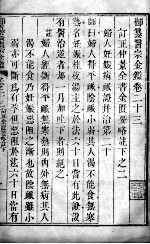 御纂醫宗金鑑卷二十三
訂正仲景全書金匱要略註下之二
婦人妊娠病脈證并治第二十
師曰婦人得平脈陰脈小弱其人渴不能食無寒
熱名妊娠桂枝湯主之於法六十日當有此證設
有醫治逆者卻一月加吐下者則絕之
婦人經斷得平脈無寒熱則內外無病其人
渴不能食乃妊娠惡阻之漸也故陰脈雖小弱
亦可斷為有孕但惡阻於法六十日當有